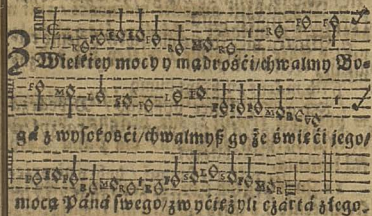 Z Wielkiey mocy y mądrośći/chwalmy Bo-
gá z wysokośći/chwalmyß go że święći jego/
mocą Páná swego/zwyćiężyli czártá złego.